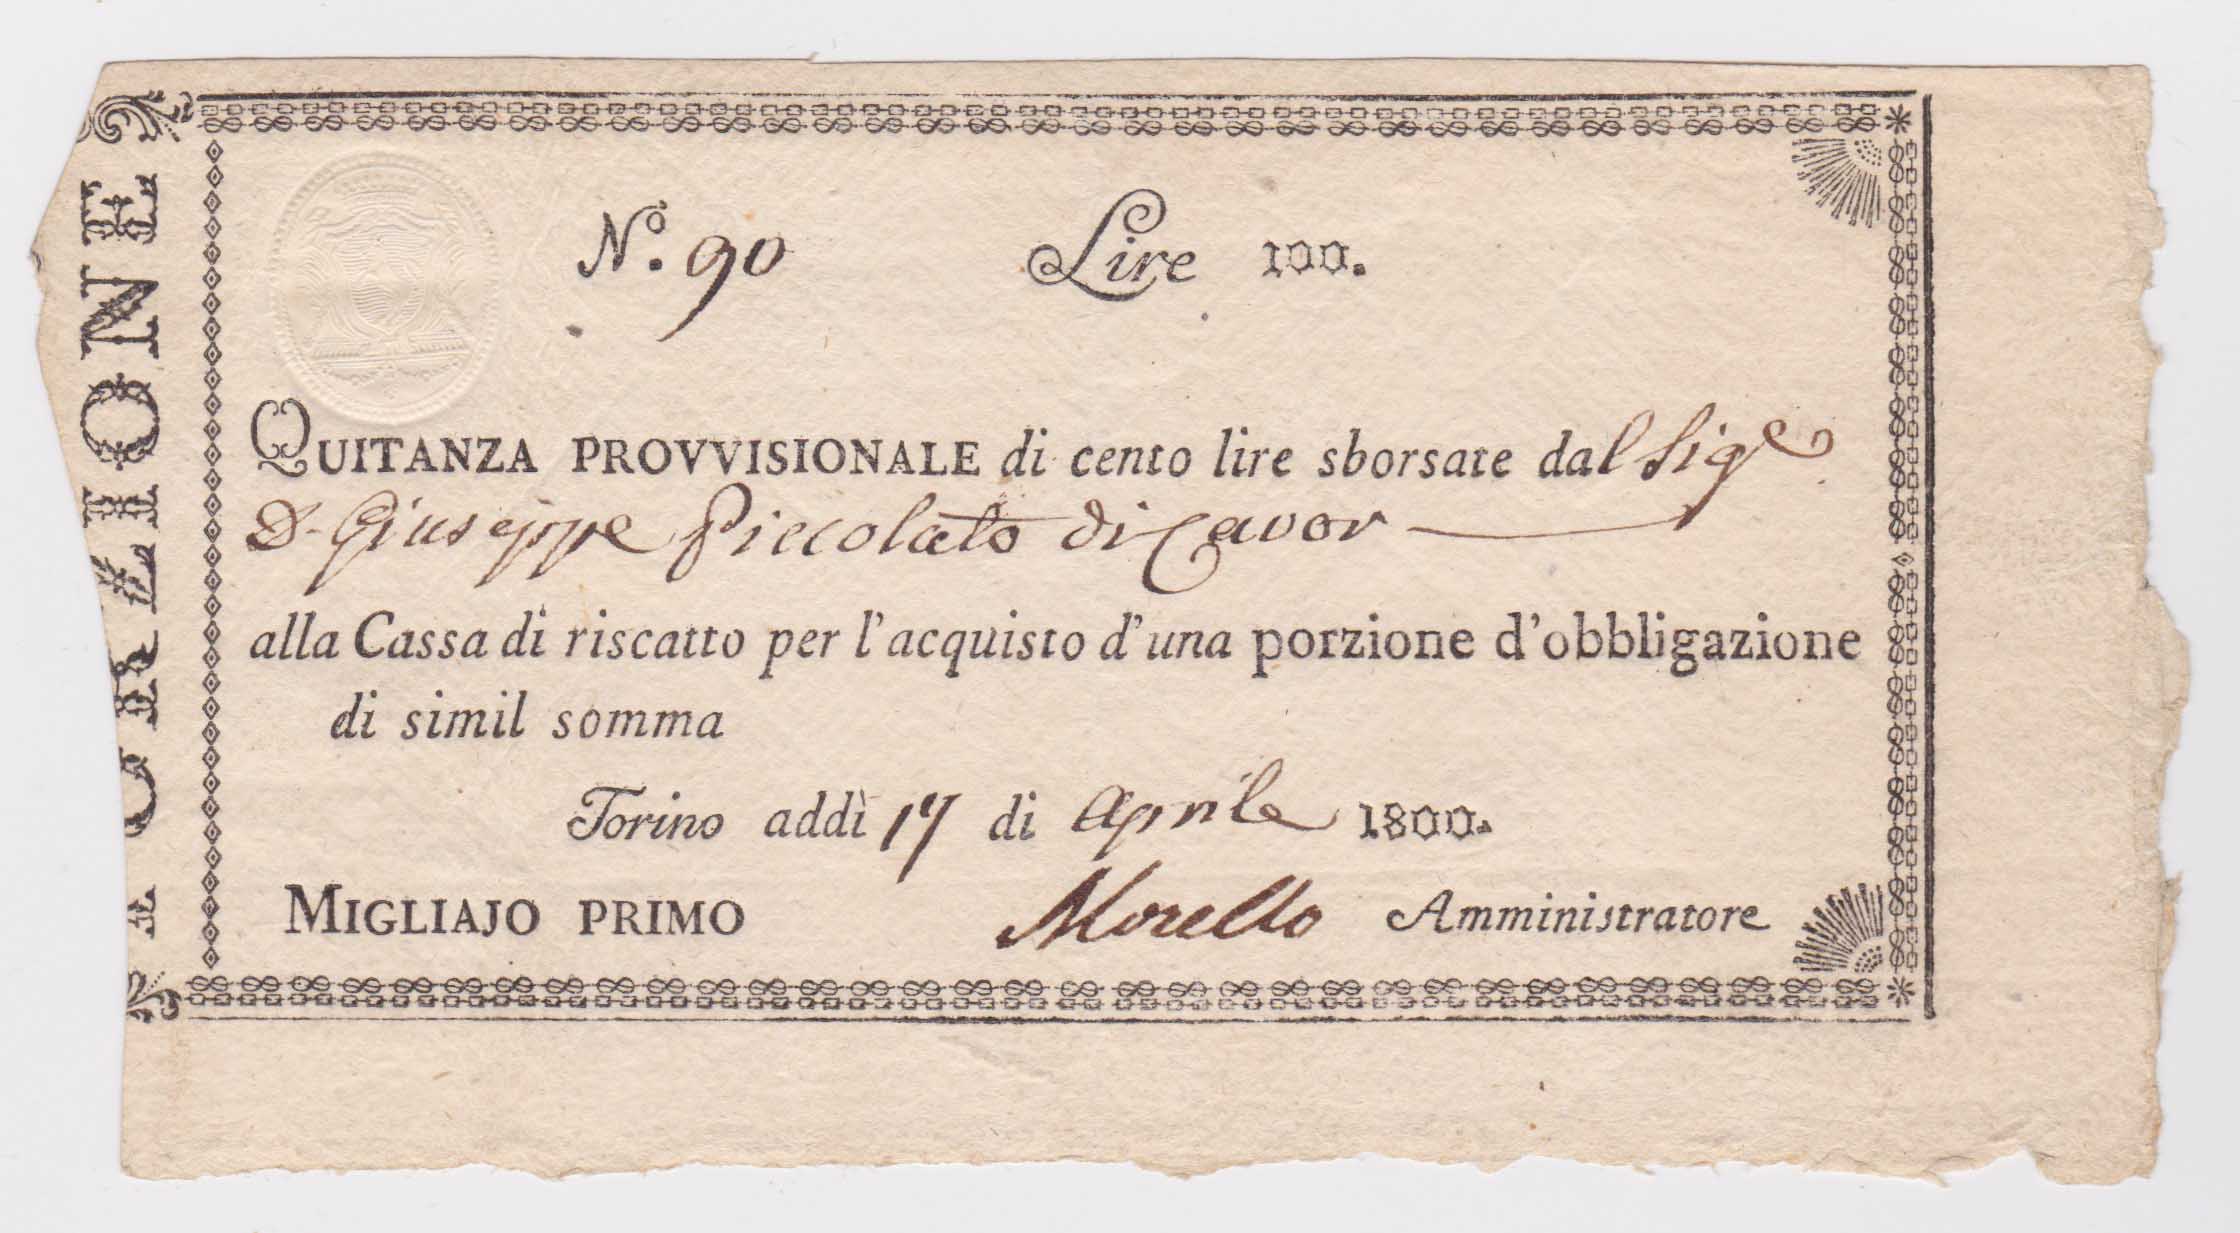 Nº. 90 Lire 100.
QUITANZA PROVVISIONALE di cento lire sborsate dal Sigr
D. Giuseppe Piccolato di Cavor
alla Cassa di riscatto per l'acquisto d'una porzione d'obbligazione
di simil somma
Torino addì 17 di Aprile 1800.
MIGLIAJO PRIMO Morello Amministratore